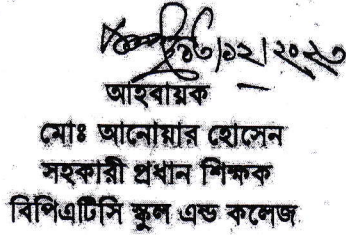 ১৩/১২/২০২৩
আহবায়ক
মোঃ আনোয়ার হোসেন
সহকারী প্রধান শিক্ষক
বিপিএটিসি স্কুল এন্ড কলেজ